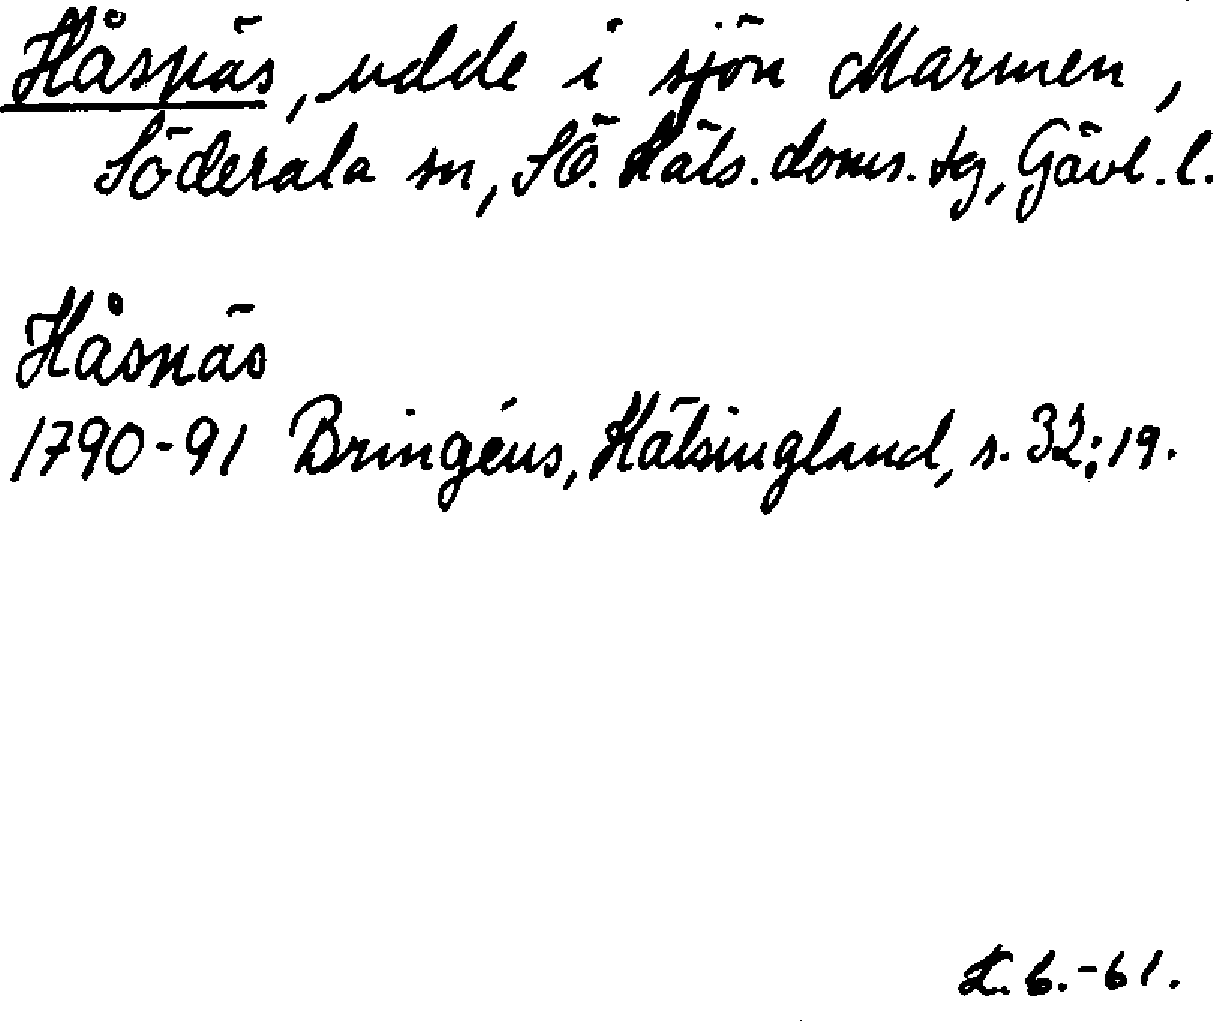 Håsnäs, udde i sjön Marmen,
Söderala sn, SÖ. Häls. doms. tg, Gävl. l.
Håsnäs
1790-91 Bringéus, Hälsingland, s. 32:19.
L. 6.-61.